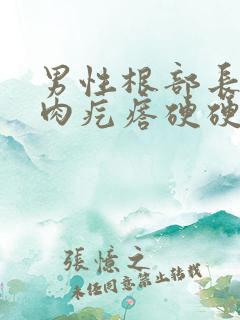 男性根部長
肉疙瘩硬硬
張憶之
未经同意禁止转载